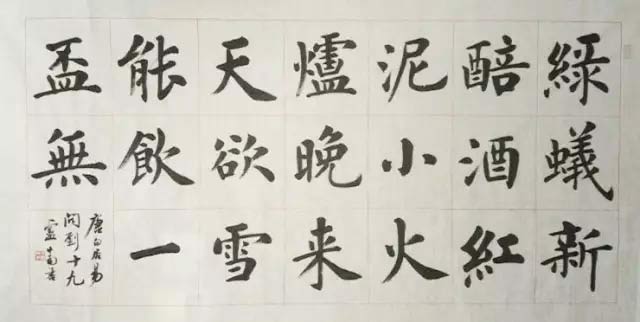 綠蟻新
醅酒紅
泥小火
爐晚来
天欲雪
能飲一
盃無
唐白居易
问劉十九